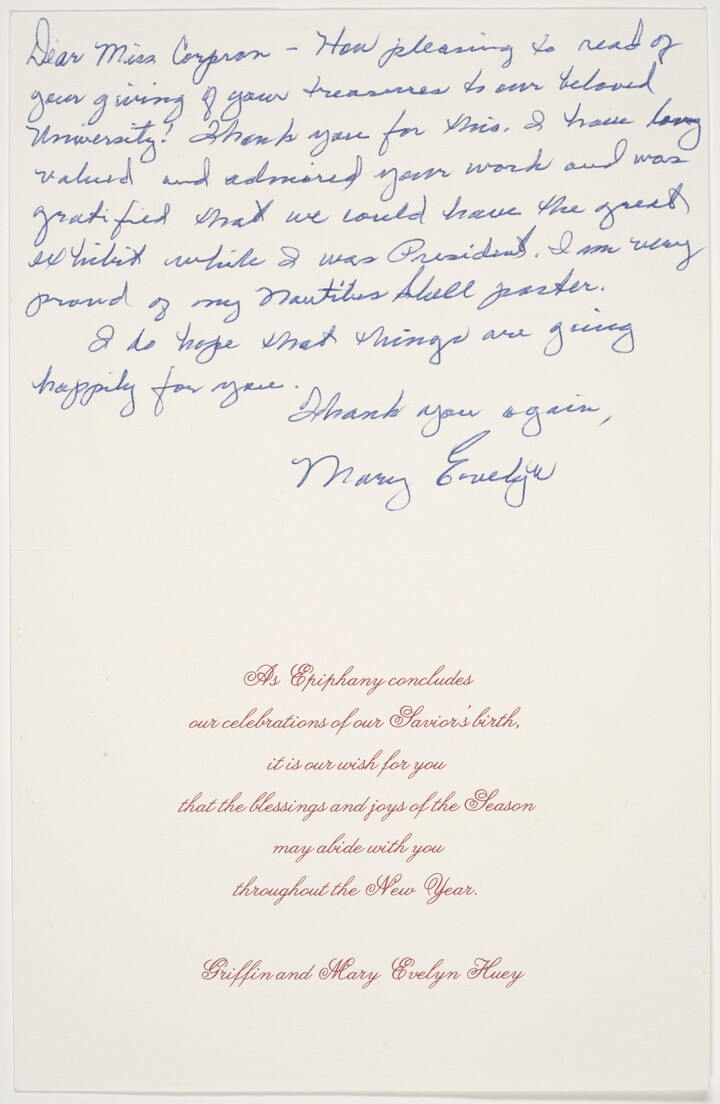 Dear Miss Corpron - How pleasing to read of
your giving of your treasures to our beloved
University! Thank you for this. I have long
valued and admired your work and was
gratified that we could have the great
exhibit while I was President. I am very
proud of my Nautilus Shell poster.
I do hope that things are going
happily for you.
Thank you again,
Mary Evelyn
As Epiphany concludes
our celebrations of our Savior's birth,
it is our wish for you
that the blessings and joys of the Season
may abide with you
throughout the New Year.
Griffin and Mary Evelyn Huey